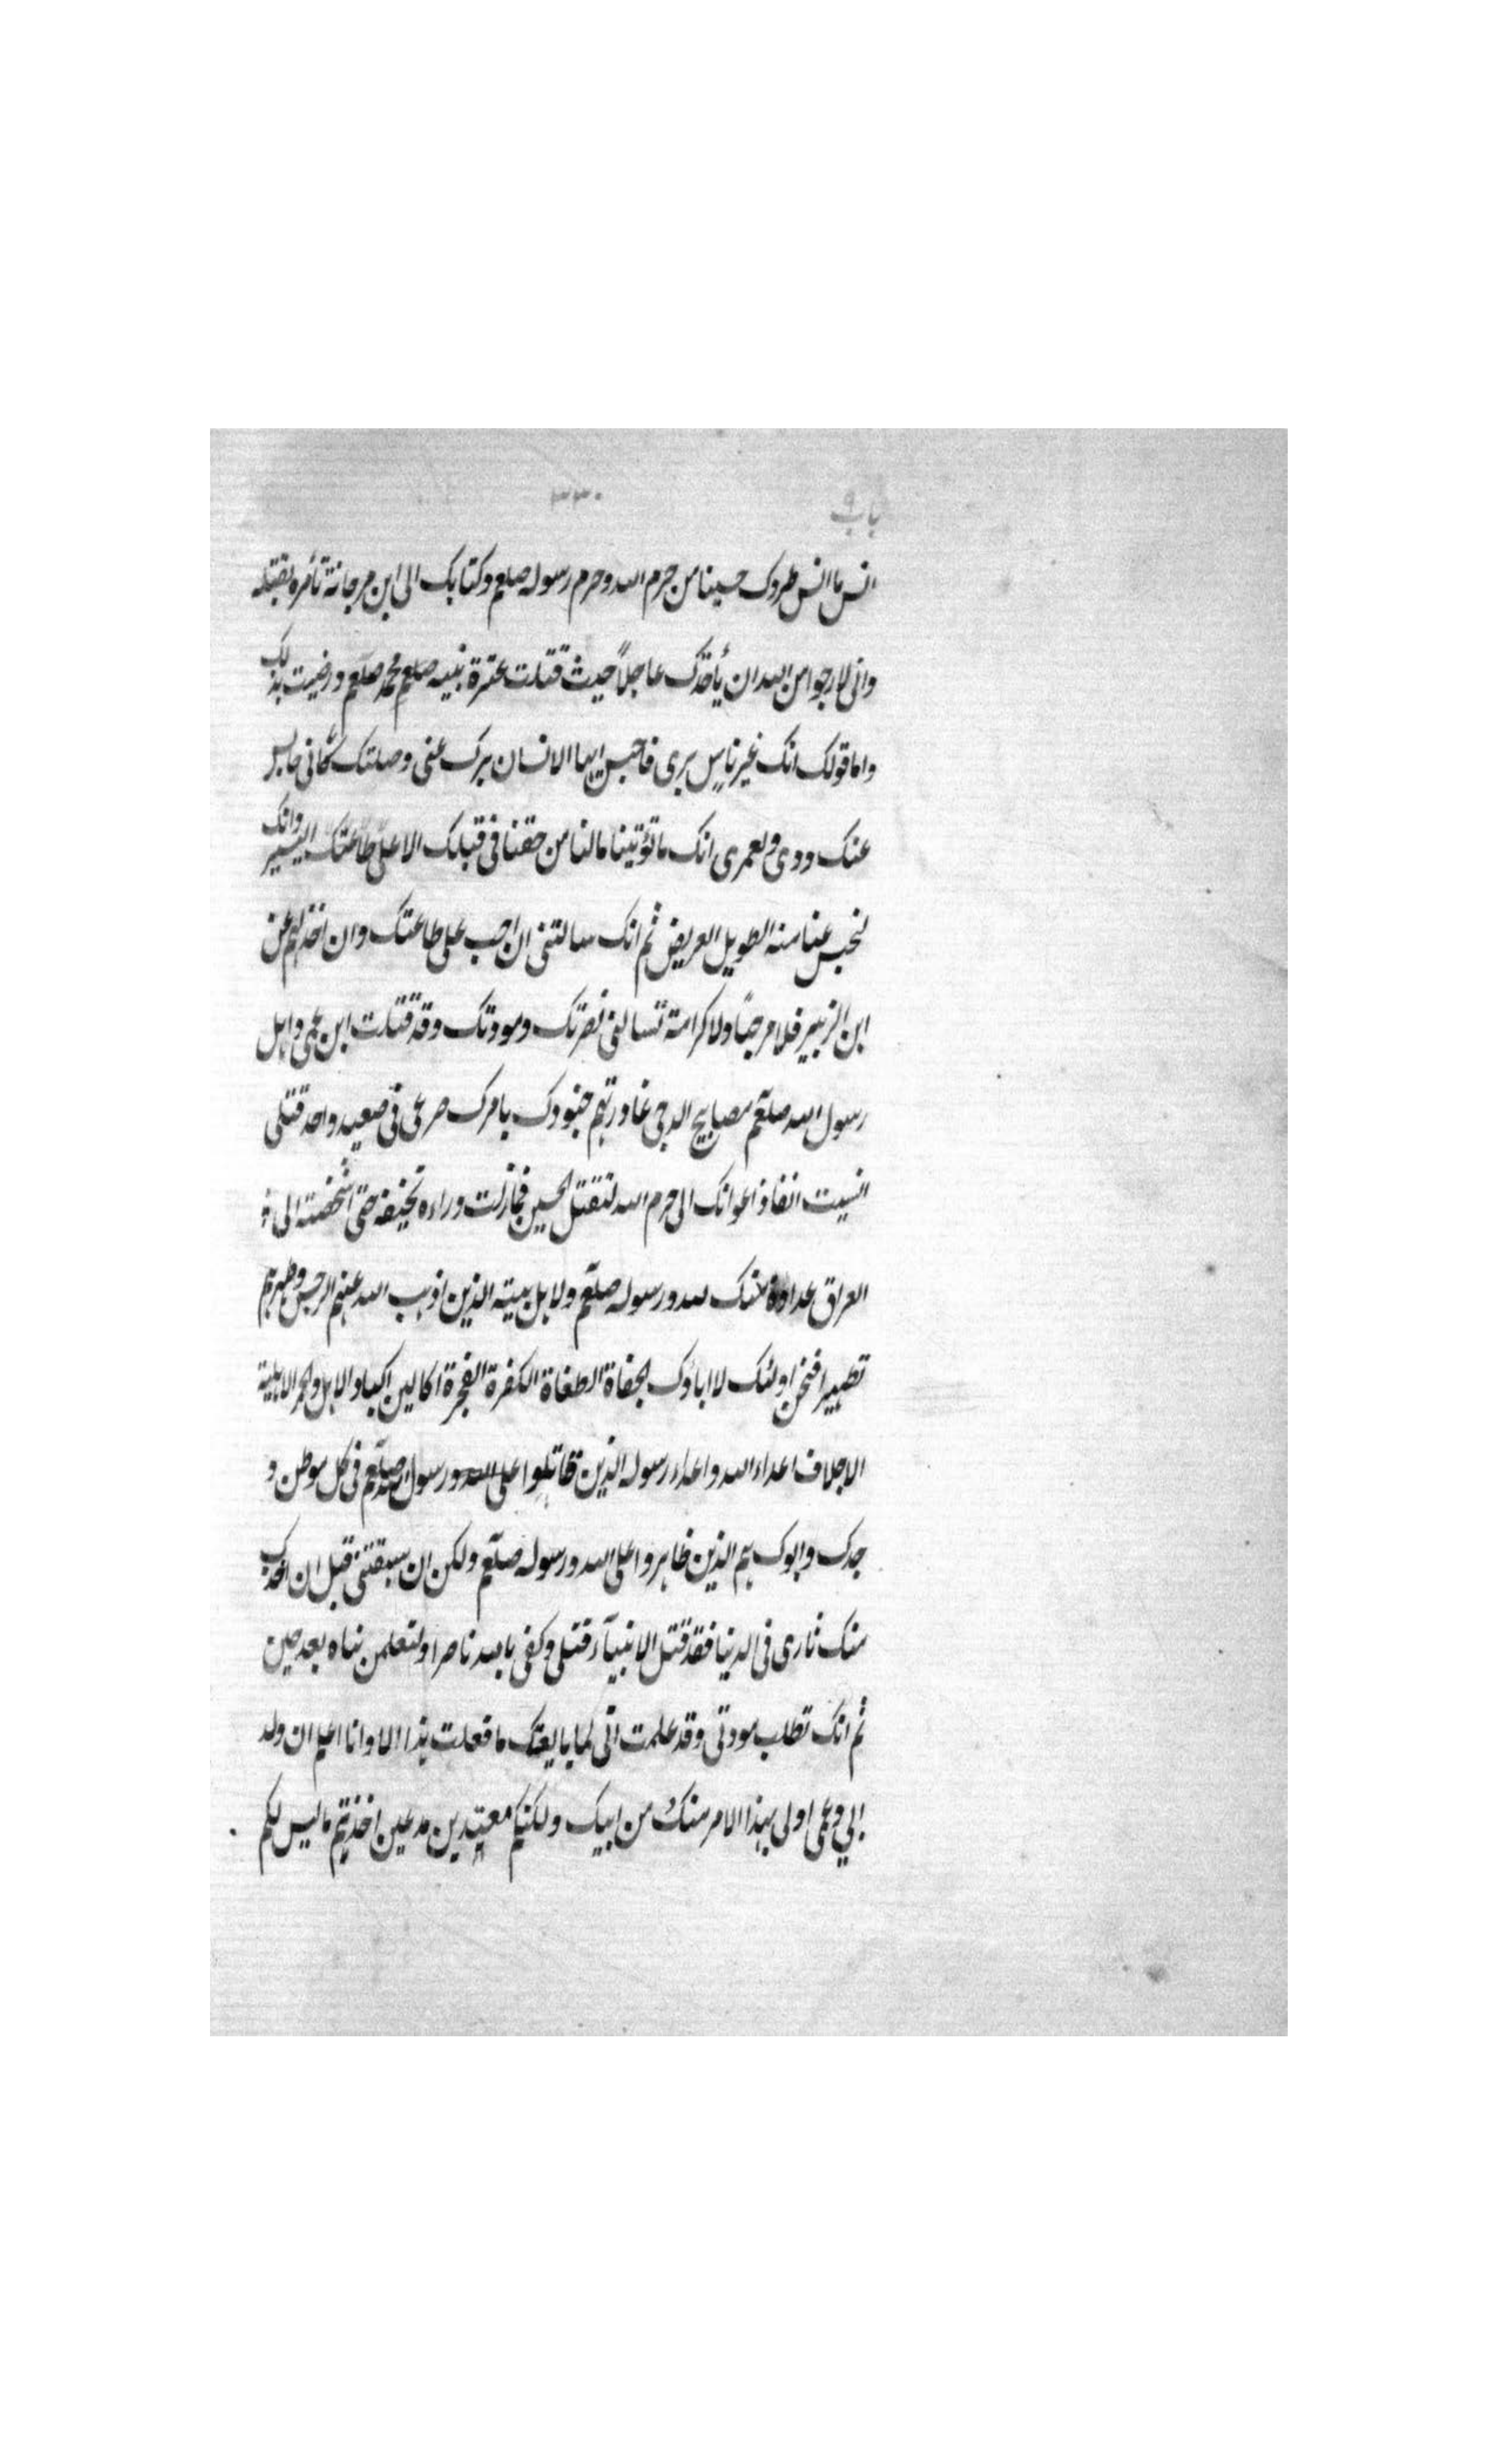 باب ٩
٣٣٠
انس ما انس طردك حسينا من حرم الله وحرم رسوله صلعم وكتابك الى ابن مرجانة تأمره بقتله
وانى لارجوا من الله ان يأخذك عاجلاً حيث قتلت عترة نبيه صلعم محمد صلعم ورضيت بذلك
واما قولك انك غير ناس برى فاحبس ايها الانسان برك عنى وصلتك فانى حابس
عنك ودى ولعمرى انك ما تؤتينا مالنا من حقنا فى قبلك الا على طاعتك اليسير وانك
لتحبس عنا منه الطويل العريض ثم انك سالتنى ان احب على طاعتك وان اخذلهم عن
ابن الزبير فلا مرحباً ولا كرامة تسالنى نصرتك ومودتك وقد قتلت ابن عمى واهل
رسول الله صلعم مصابيح الدجى غادرتهم جنودك بامرك صرعى فى صعيد واحد قتلى
انسيت انفاذ اعوانك الى حرم الله لتقتل الحسين فما زلت وراءه تخيفه حتى اشخصته الى
العراق عداوة منك لله ورسوله صلعم ولاهل بيته الذين اذهب الله عنهم الرجس وطهرهم
تطهيرا فنحن اولئك لا اباؤك الجفاة الطغاة الكفرة الفجرة اكالين اكباد الابل والحمر الاهلية
الاجلاف اعداء الله واعداء رسوله الذين قاتلوا على الله ورسول الله صلعم فى كل موطن و
جدك وابوك هم الذين ظاهروا على الله ورسوله صلعم ولكن ان سبقتنى قبل ان اخذك
منك ثارى فى الدنيا فقد قتل الانبيآء قتلى وكفى بالله ناصرا ولتعلمن نباه بعد حين
ثم انك تطلب مودتى وقد علمت انى لما بايعتك ما فعلت هذا الا وانا اعلم ان ولد
ابي وعمى اولى بهذا الامر منك من ابيك ولكنكم معتدين مدعين اخذتم ما ليس لكم